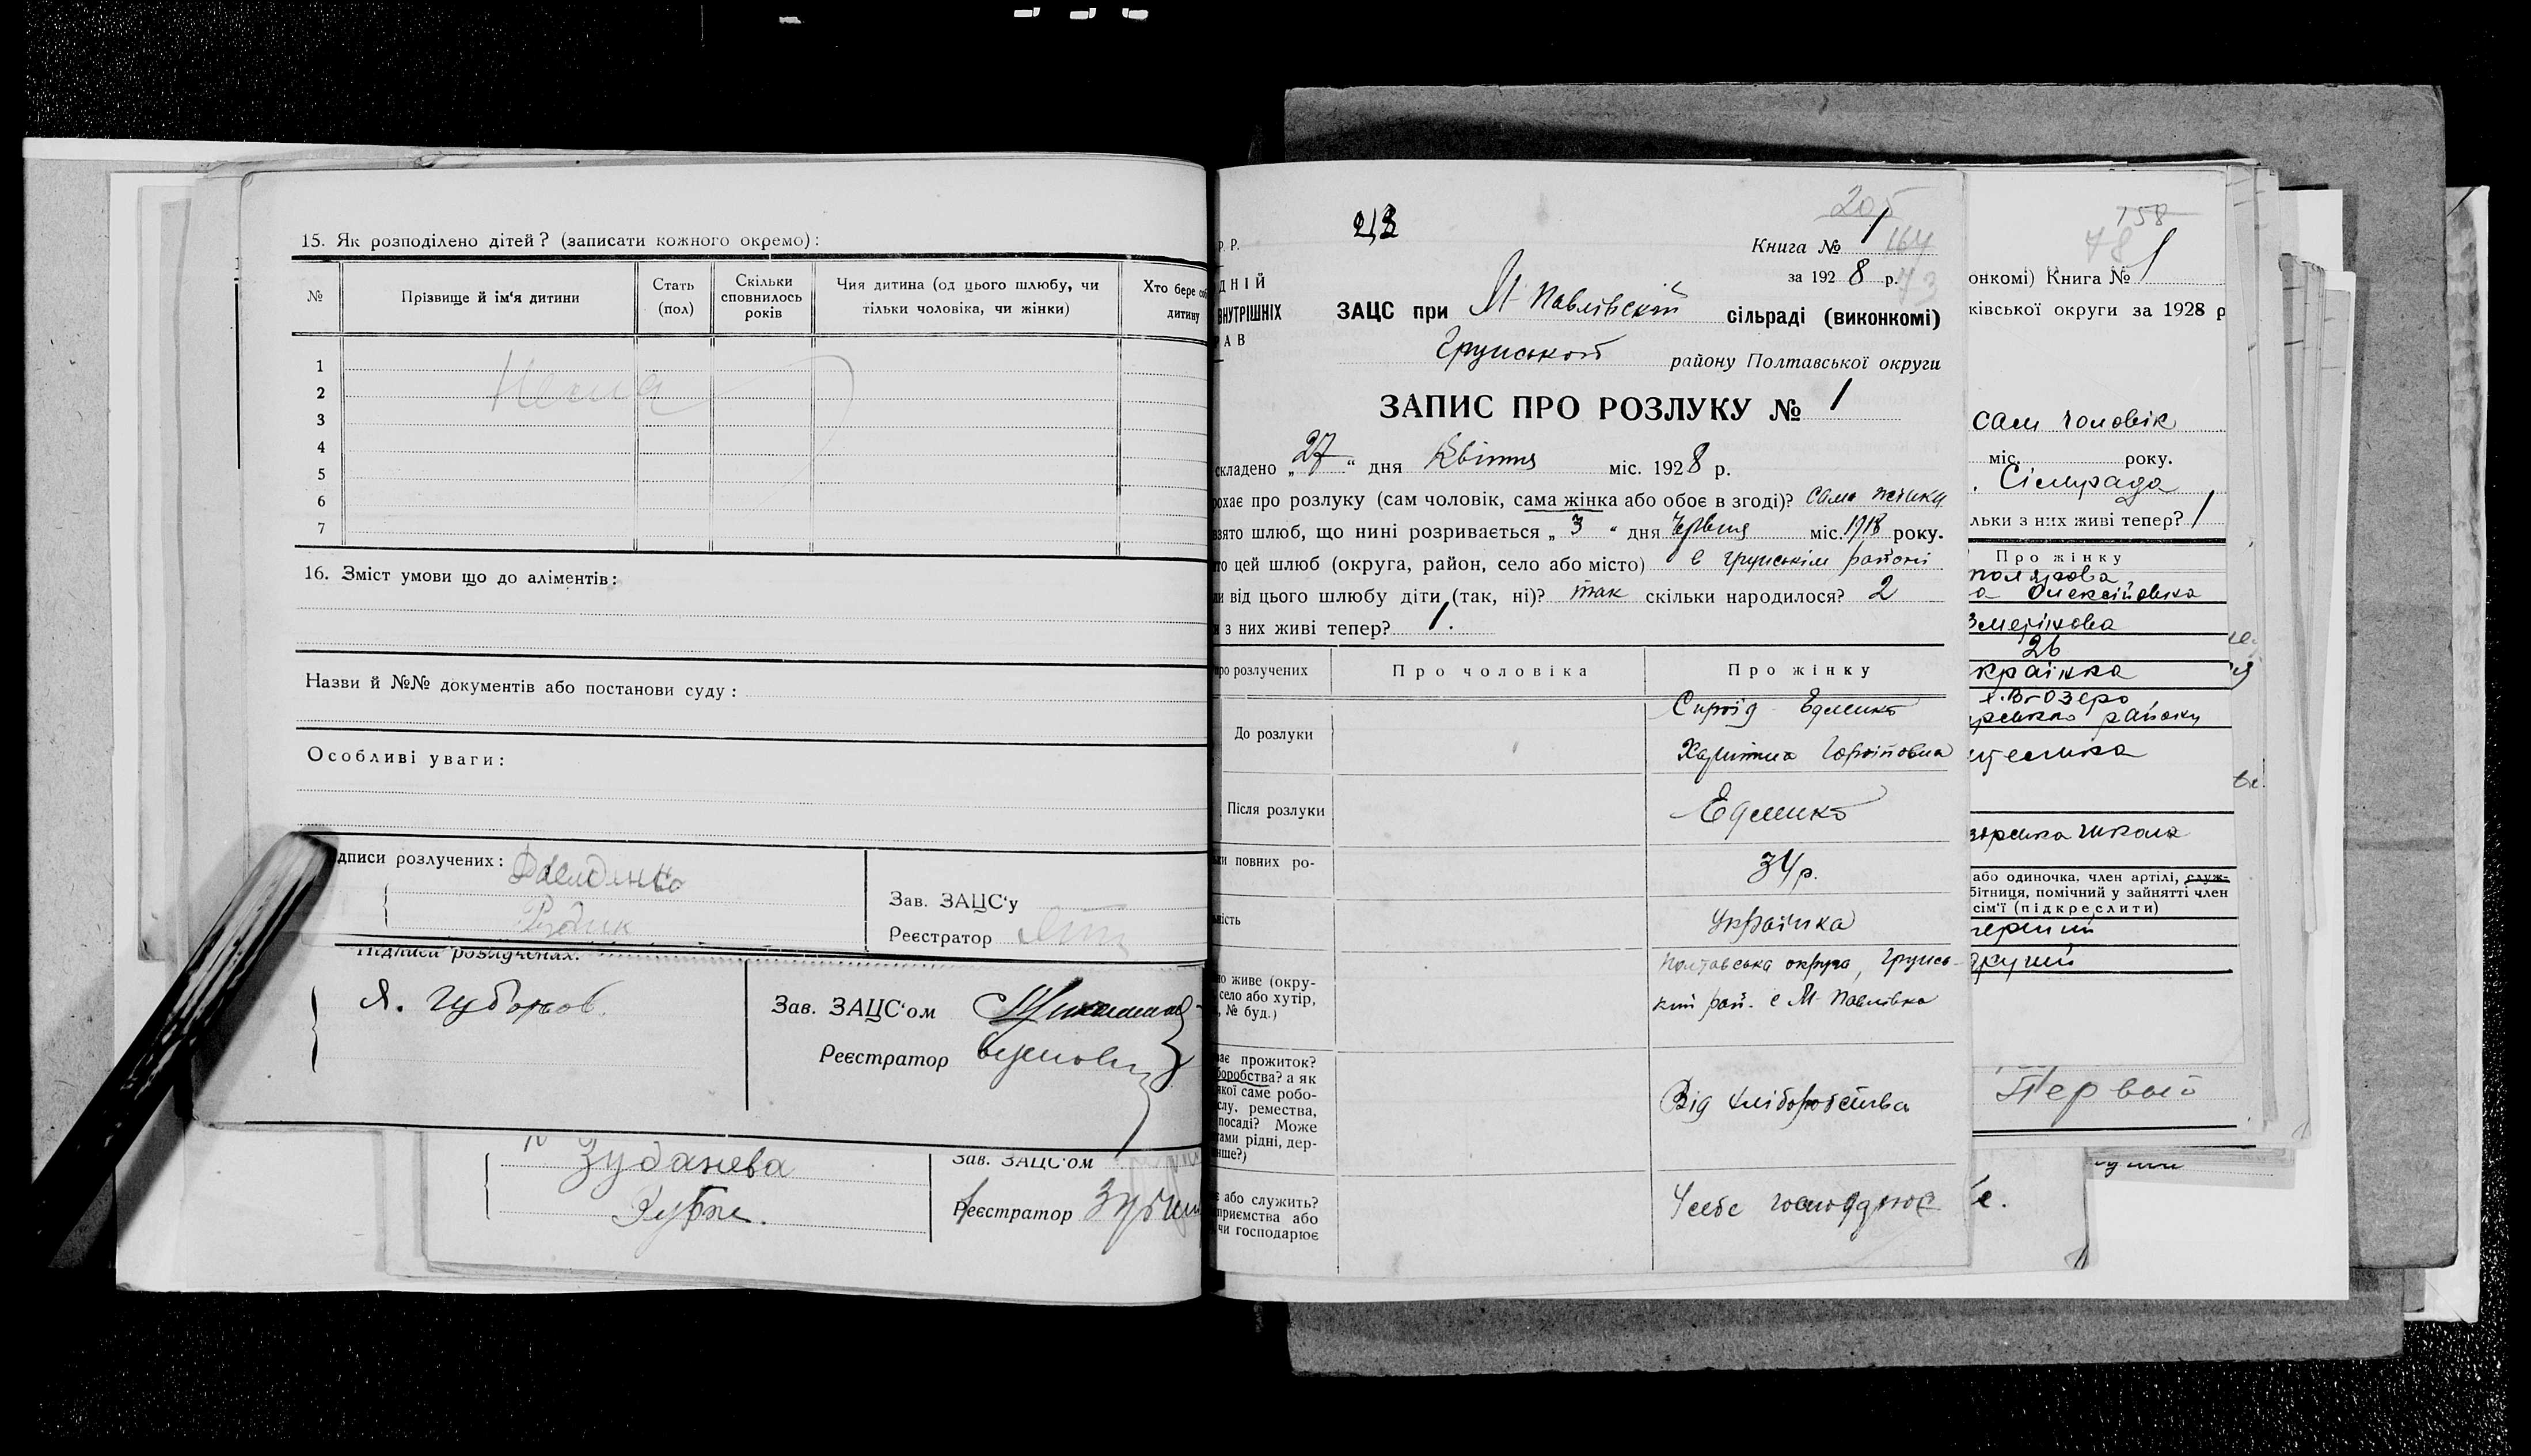 15. Як розподілено дітей? (записати кожного окремо):
№
Прізвище й ім'я дитини
Стать (пол)
Скільки сповнилось років
Чия дитина (од цього шлюбу, чи тільки чоловіка, чи жінки)
Хто бере
дитину
1
2
3
4
5
6
7
Нема
16. Зміст умови що до аліментів:
Назви й №№ документів або постанови суду:
Особливі уваги:
дписи розлучених:
Рудик
Зав. ЗАЦС'у
Реєстратор
Підписи розлучених:
Я. Губарьов.
Зав. ЗАЦС'ом
Реєстратор
Зуданева
Зубко.
Зав. ЗАЦС'ом
Реєстратор
213
205
Р. Р.
Книга № 1
164
ДНІЙ
за 1928 р.
73
ВНУТРІШНІХ
РАВ
ЗАЦС при М-Павлівській сільраді (виконкомі)
Грунської району Полтавської округи
ЗАПИС ПРО РОЗЛУКУ № 1
складено „27" дня Квітня міс. 1928 р.
охає про розлуку (сам чоловік, сама жінка або обоє в згоді)? Сама жінка
взято шлюб, що нині розривається „3" дня Червня міс. 1918 року.
то цей шлюб (округа, район, село або місто) в грунськім районі
ли від цього шлюбу діти (так, ні)? так скільки народилося? 2
и з них живі тепер? 1.
ро розлучених
Про чоловіка
Про жінку
До розлуки
Харитина
Після розлуки
ки повних ро-
34 р.
ність
Українка
но живе (окру-
село або хутір,
, № буд.)
Полтавська округа, Грунсь-
кий рай. с М-Павлівка
ває прожиток?
боробства? а як
якої саме робо-
слу, ремества,
посаді? Може
тами рідні, дер-
нше?)
Від хліборобства
е або служить?
приємства або
чи господарює
У себе господарює
158
78
онкомі) Книга № 1
ківської округи за 1928 р
сам чоловік
міс. року.
. Сільрада
льки з них живі тепер? 1
Про жінку
а Олексіївна
26
країнка
х. В-Озеро
району
школа
або одиночка, член артілі, служ-
бітниця, помічний у зайнятті член
сім'ї (підкреслити)
Первый